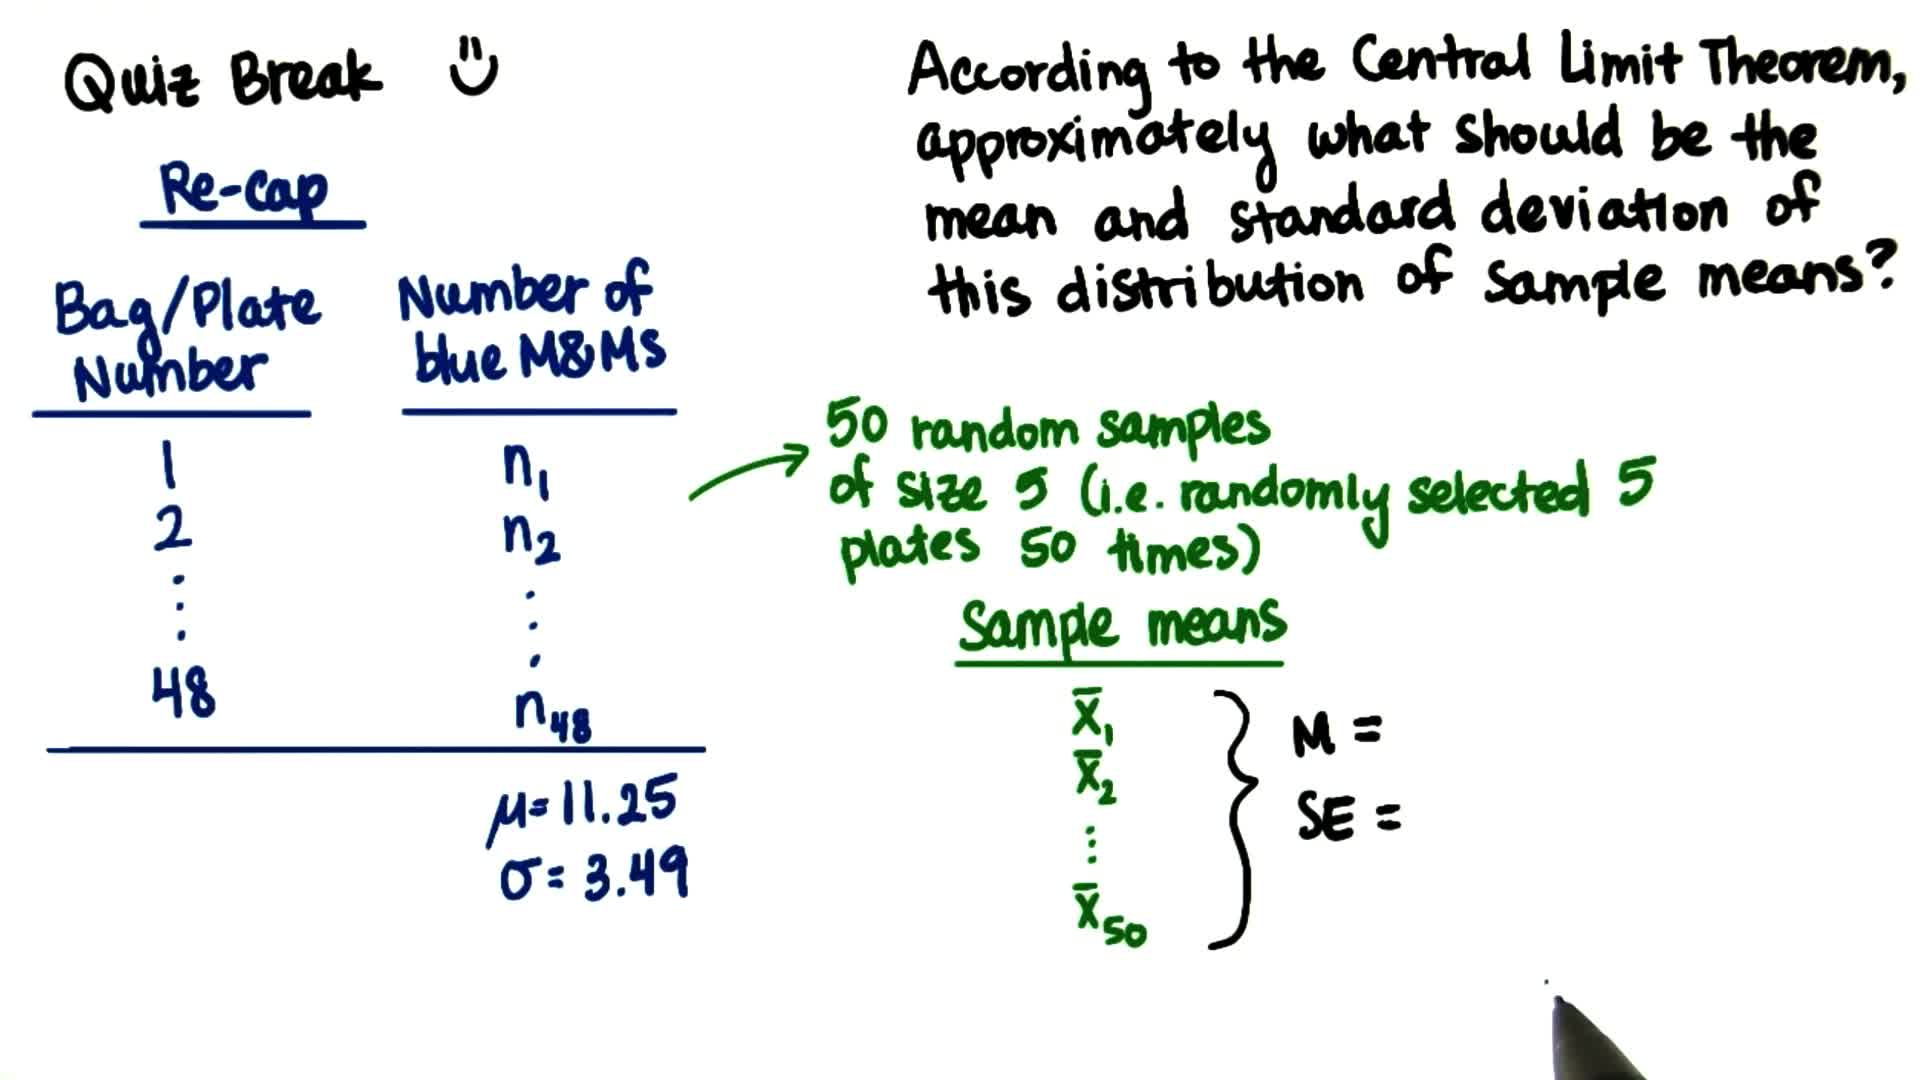 Quiz Break
Re-cap
Bag/Plate Number
Number of blue M&Ms
1 n₁
2 n₂
⋮ ⋮
48 n₄₈
μ=11.25
σ=3.49
According to the Central Limit Theorem,
approximately what should be the
mean and standard deviation of
this distribution of sample means?
50 random samples
of size 5 (i.e. randomly selected 5
plates 50 times)
Sample means
x̄₁
x̄₂
⋮
x̄₅₀
M =
SE =